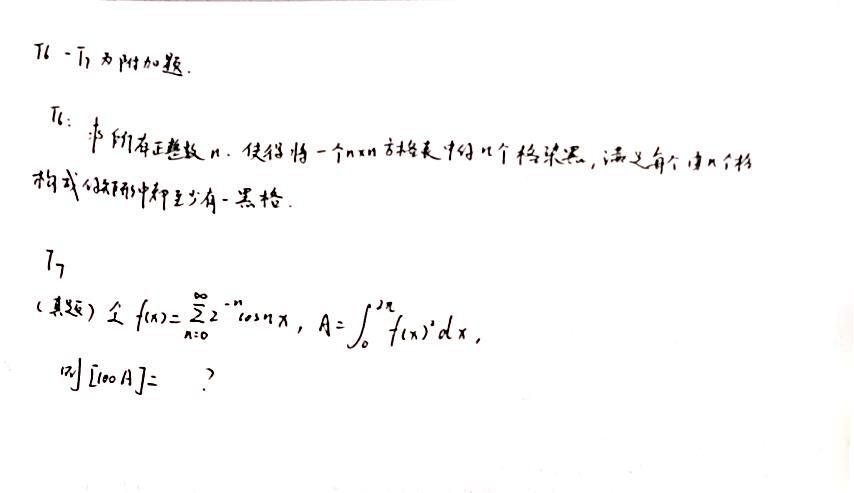 T6 - T7 为附加题.
T6: 求所有正整数 n. 使得将一个 n×n 方格表中的 n 个格染黑, 满足每个由 n 个格
构成的矩形中都至少有一黑格.
T7
(真题) 令 f(x)=∑_{n=0}^{∞} 2^{-n} cos nx, A=∫_0^{2π} f(x)^2 dx,
则 [100A]= ?